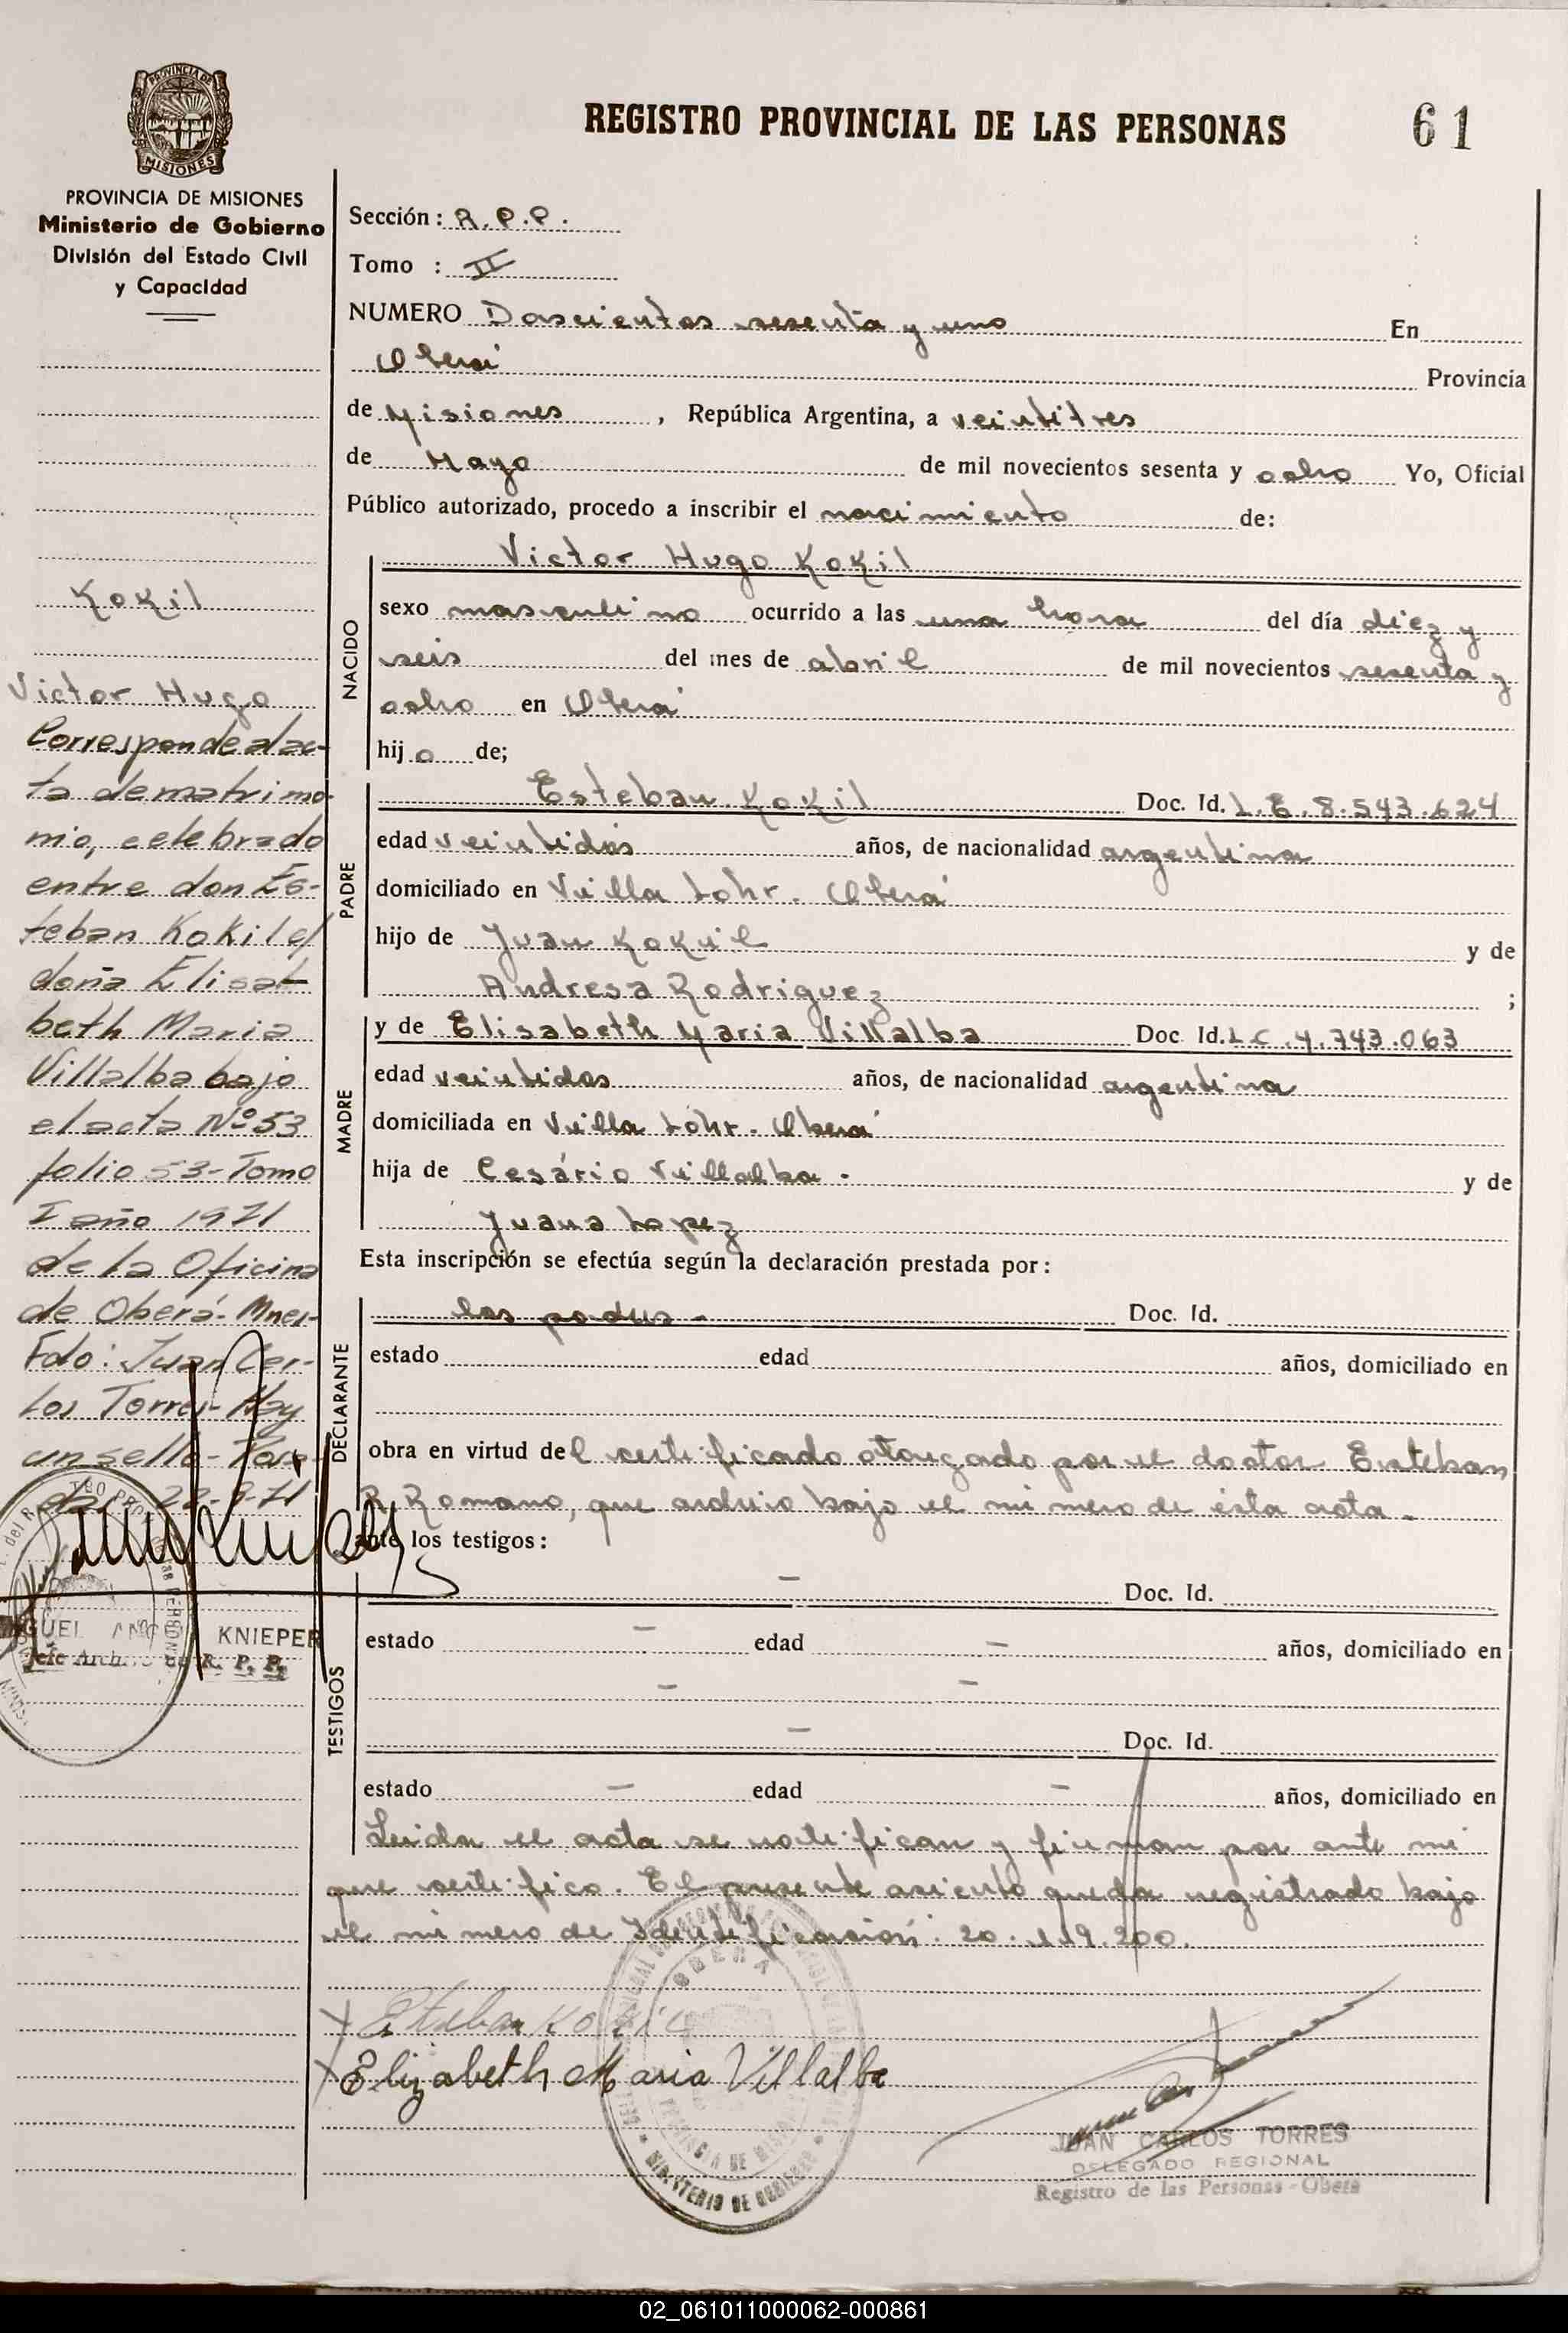 REGISTRO PROVINCIAL DE LAS PERSONAS
61
PROVINCIA DE
MISIONES
PROVINCIA DE MISIONES
Ministerio de Gobierno
División del Estado Civil
y Capacidad
Kokil
Victor Hugo
Corresponde al ac-
ta de matrimo-
nio, celebrado
entre don Es-
teban Kokil e/
doña Elisa-
beth Maria
Villalba bajo
el acta Nº 53
folio 53-Tomo
I año 1971
de la Oficina
de Oberá- Mnes-
Fdo: Juan Car-
los Torres- Hay
un sello- Posa-
das 22-9-71
KNIEPER
R. P. P.
Sección: R.P.P.
Tomo : II
NUMERO Doscientos sesenta y uno En
Oberá Provincia
de Misiones, República Argentina, a veintitres
de Mayo de mil novecientos sesenta y ocho Yo, Oficial
Público autorizado, procedo a inscribir el nacimiento de:
NACIDO
Victor Hugo Kokil
sexo masculino ocurrido a las una hora del día diez y
seis del mes de abril de mil novecientos sesenta y
ocho en Oberá
hijo de;
PADRE
Esteban Kokil Doc. Id. L.E. 8.543.624
edad veintidos años, de nacionalidad argentina
domiciliado en Villa Lohr. Oberá
hijo de Juan Kokil y de
Andresa Rodriguez ;
MADRE
y de Elisabeth Maria Villalba Doc Id. L C. 4.743.063
edad veintidos años, de nacionalidad argentina
domiciliada en Villa Lohr. Oberá
hija de Cesário Villalba - y de
Juana Lopez
Esta inscripción se efectúa según la declaración prestada por:
DECLARANTE
los padres - Doc. Id.
estado edad años, domiciliado en
obra en virtud del certificado otorgado por el doctor Esteban
R. Romano, que archivo bajo el número de ésta acta -
ante los testigos:
TESTIGOS
- Doc. Id.
estado - edad - años, domiciliado en
- -
- Doc. Id.
estado - edad - años, domiciliado en
Leida el acta se notifican y firman por ante mi
que certifico. El presente asiento queda registrado bajo
el número de Identificación: 20.119.200.
x Esteban Kokil
x Elizabeth Maria Villalba
OBERA
PROVINCIA DE MISIONES
MINISTERIO DE GOBIERNO
JUAN CARLOS TORRES
DELEGADO REGIONAL
Registro de las Personas - Oberá
02_061011000062-000861